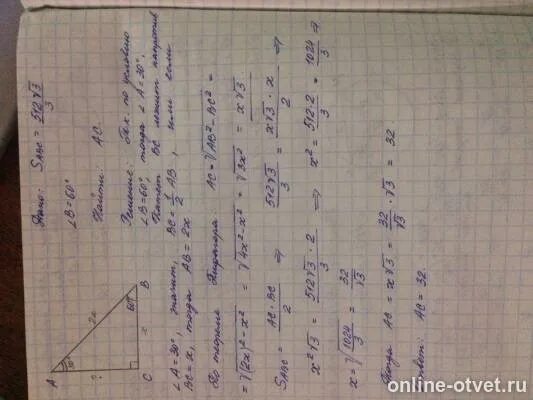 Дано: S_ABC = 512√3/3
∠B=60°
Найти: AC.
Решение: Так по условию
∠B=60°, тогда ∠A=30°.
Катет BC лежит напротив
∠A=30°, значит, BC=1/2 AB, или если
BC=x, тогда AB=2x
По теореме Пифагора AC=√(AB²-BC²)=
=√((2x)²-x²) = √(4x²-x²) = √(3x²) = x√3
S_ABC = AC·BC/2 ⇒ 512√3/3 = x√3·x/2 ⇒
x²√3 = 512√3·2/3 ⇒ x² = 512·2/3 = 1024/3 ⇒
x=√(1024/3) = 32/√3
Тогда AC = x√3 = 32/√3 · √3 = 32
Ответ: AC=32.
A
30°
2x
?
60°
B
x
C
online-otvet.ru